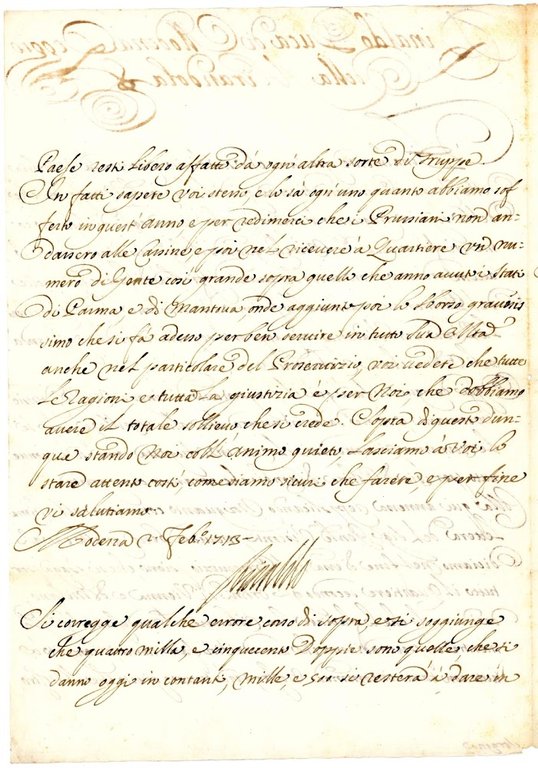 Paese resti libero affatto da ogn'altra sorte di Truppe.
In fatti sapete voi stessi, e lo sà ogn'uno quanto abbiamo sof-
ferto in quest'anno e per redimerci che i Prussiani non an-
dassero alle Cassine, e poi nel ricevere à Quartiere un nu-
mero di Gente così grande sopra quella che anno avuti i stati
di Parma e di Mantova onde aggiunto poi lo sborso gravis-
simo che si fà adesso per ben servire in tutto Sua Mtà
anche nel particolare del Proservizio, voi vedete che tutte
le Ragioni e tutta la giustizia è per Noi che dobbiamo
avere il totale sollievo che si crede. Sopra di questo dun-
que stando Noi coll'animo quieto, lasciamo à Voi lo
stare attento costì, come siamo sicuri che farete, e per fine
vi salutiamo.
Modena 2 Feb.o 1713-
Rinaldo
Si corregge qualche errore corso di sopra, e si soggiunge
che quattro milla, e cinquecento Doppie sono quelle che si
danno oggi in contanti, mille, e si resterà à dare in